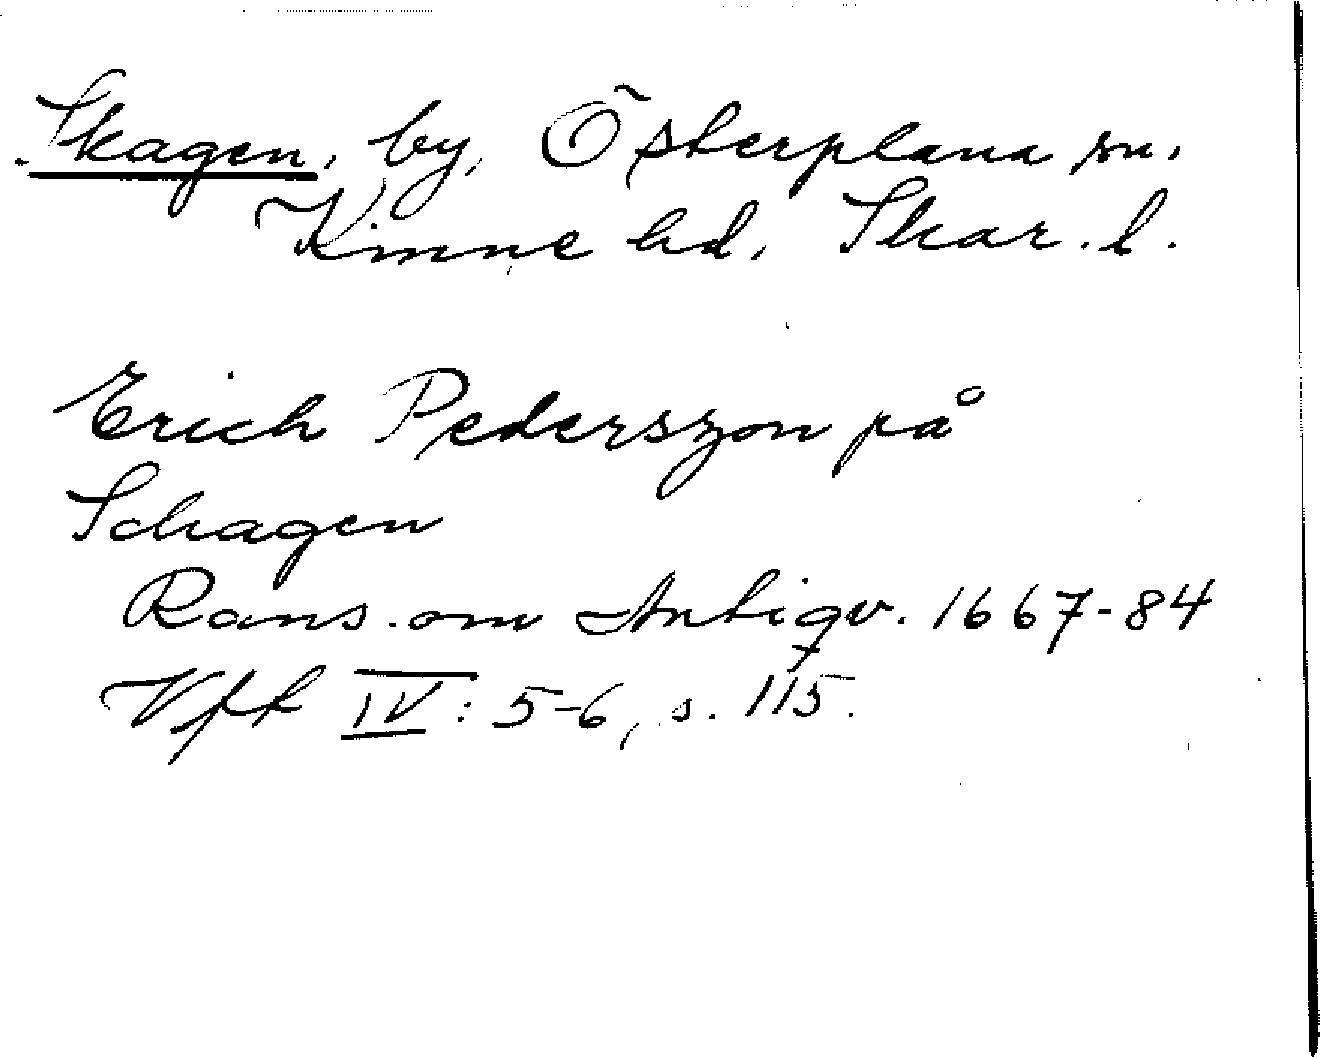 Skagen, by, Österplana sn,
Kinne hd, Skar. l.
Erich Pederszon på
Schagen
Rans. om Antiqv. 1667-84
Vff IV: 5-6, s. 115.